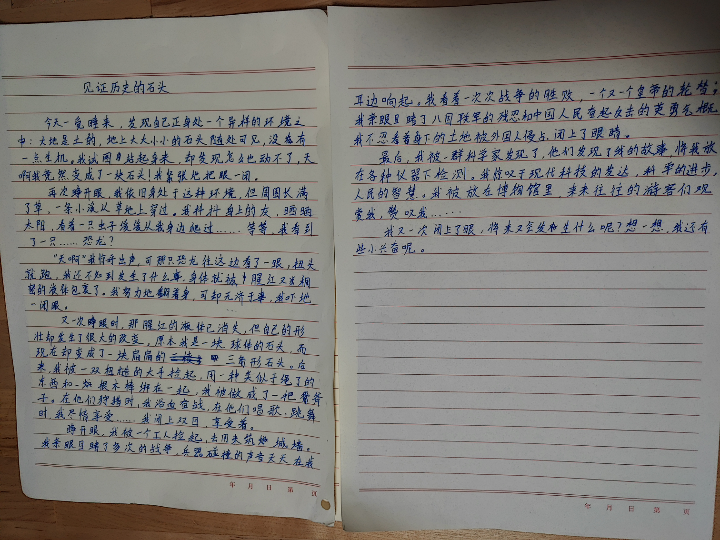 见证历史的石头
今天一觉睡来，发现自己正身处一个异样的环境之
中：大地是土的，地上大大小小的石头随处可见，没有
一点生机。我试图身站起身来，却发现怎么也动不了，天
啊我竟然变成了一块石头！我紧张地把眼一闭。
再次睁开眼，我依旧身处于这种环境，但周围长满
了草，一条小溪从草地上穿过。我抖抖身上的灰，晒晒
太阳，看着一只虫子缓缓从我身边爬过……等等，我看到
了一只……恐龙？
“天啊”我惊呼出声，可那只恐龙往这边看了一眼，扭头
就跑，我还不知到发生了什么事，身体就被腥红又发烟
的液体包裹了。我努力地翻着身，可却无济于事，我吓地
一闭眼。
又一次睁眼时，那腥红的液体已消失，但自己的形
状却发生了很大的改变，原本我是一块球体的石头，而
现在却变成了一块扁扁的三角形石头。后
来，我被一双粗糙的大手捡起，用一种类似于绳子的
东西和一根木棒绑在一起，我被做成了一把
子。在他们狩猎时，我浴血奋战，在他们唱歌、跳舞
时，我尽情享受……我闭上双目，享受着。
睁开眼，我被一个工人捡起，去用来筑她城墙。
我亲眼目睹了多次的战争，兵器碰撞的声音天天在我
年 月 日 第 页
耳边响起。我看着一次次战争的胜败，一个又一个皇帝的轮替；
我亲眼目睹了八国联军的残忍和中国人民奋起反击的英勇
我不忍看着身下的土地被外国人侵占，闭上了眼睛。
最后，我被一群科学家发现了，他们发现了我的故事，将我放
在各种仪器下检测。我惊叹于现代科技的发达，科学的进步，
人民的智慧。我被放在博物馆里，来来往往的游客们观
赏我，赞叹我……
我又一次闭上了眼，将来又会发生什么呢？想一想，我还有
些小兴奋呢。
年 月 日 第 页